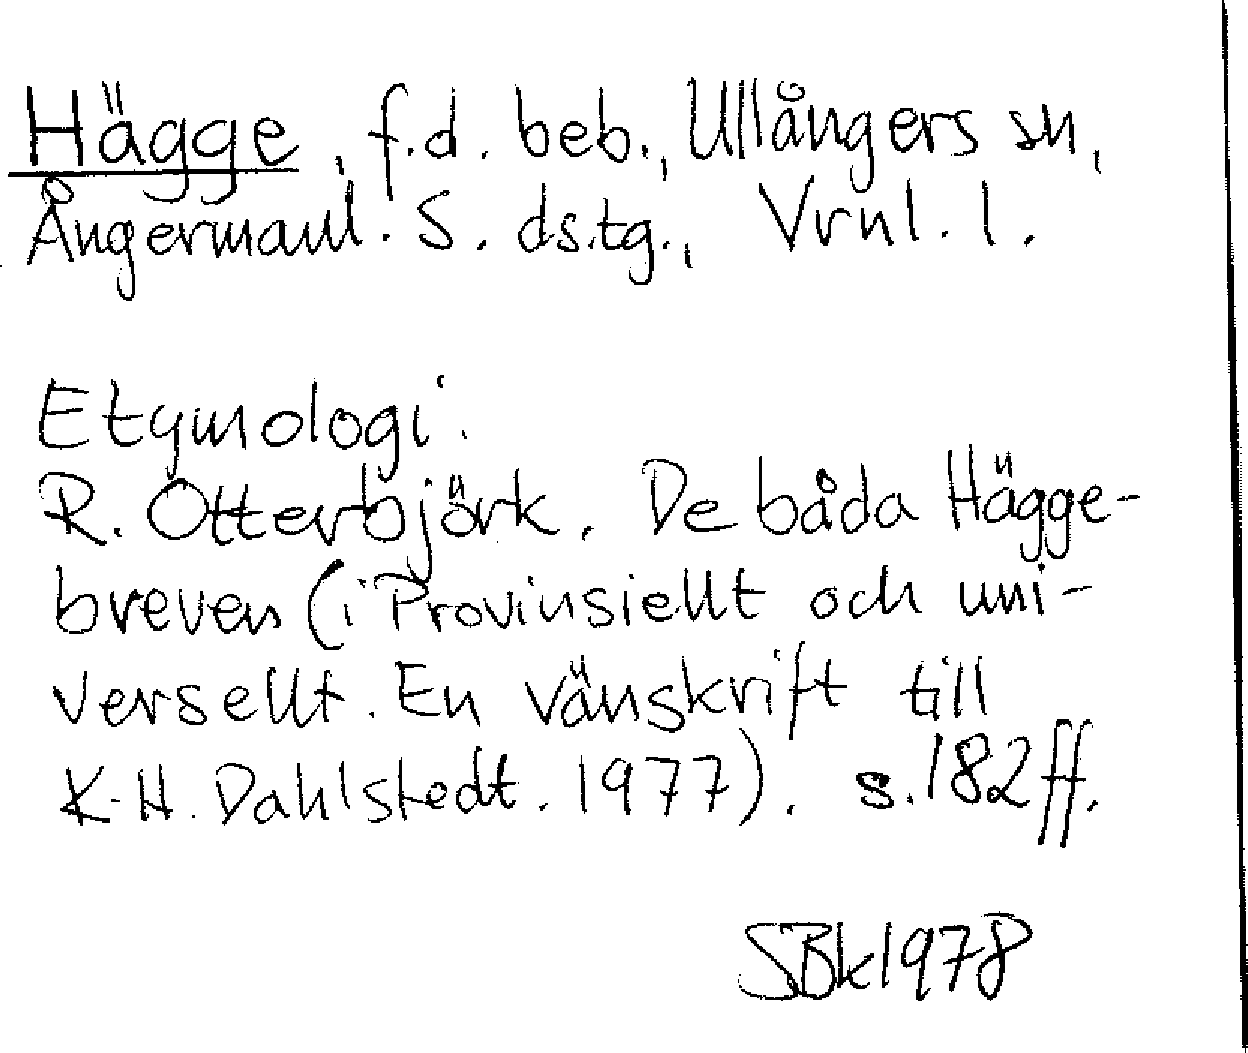 Hägge, f.d. beb., Ullångers sn,
Ångermanl. S. ds.tg., Vrnl. l.
Etymologi.
R. Otterbjörk. De båda Hägge-
breven (i Provinsiellt och uni-
versellt. En vänskrift till
K-H. Dahlstedt. 1977). s.182ff.
SBk1978